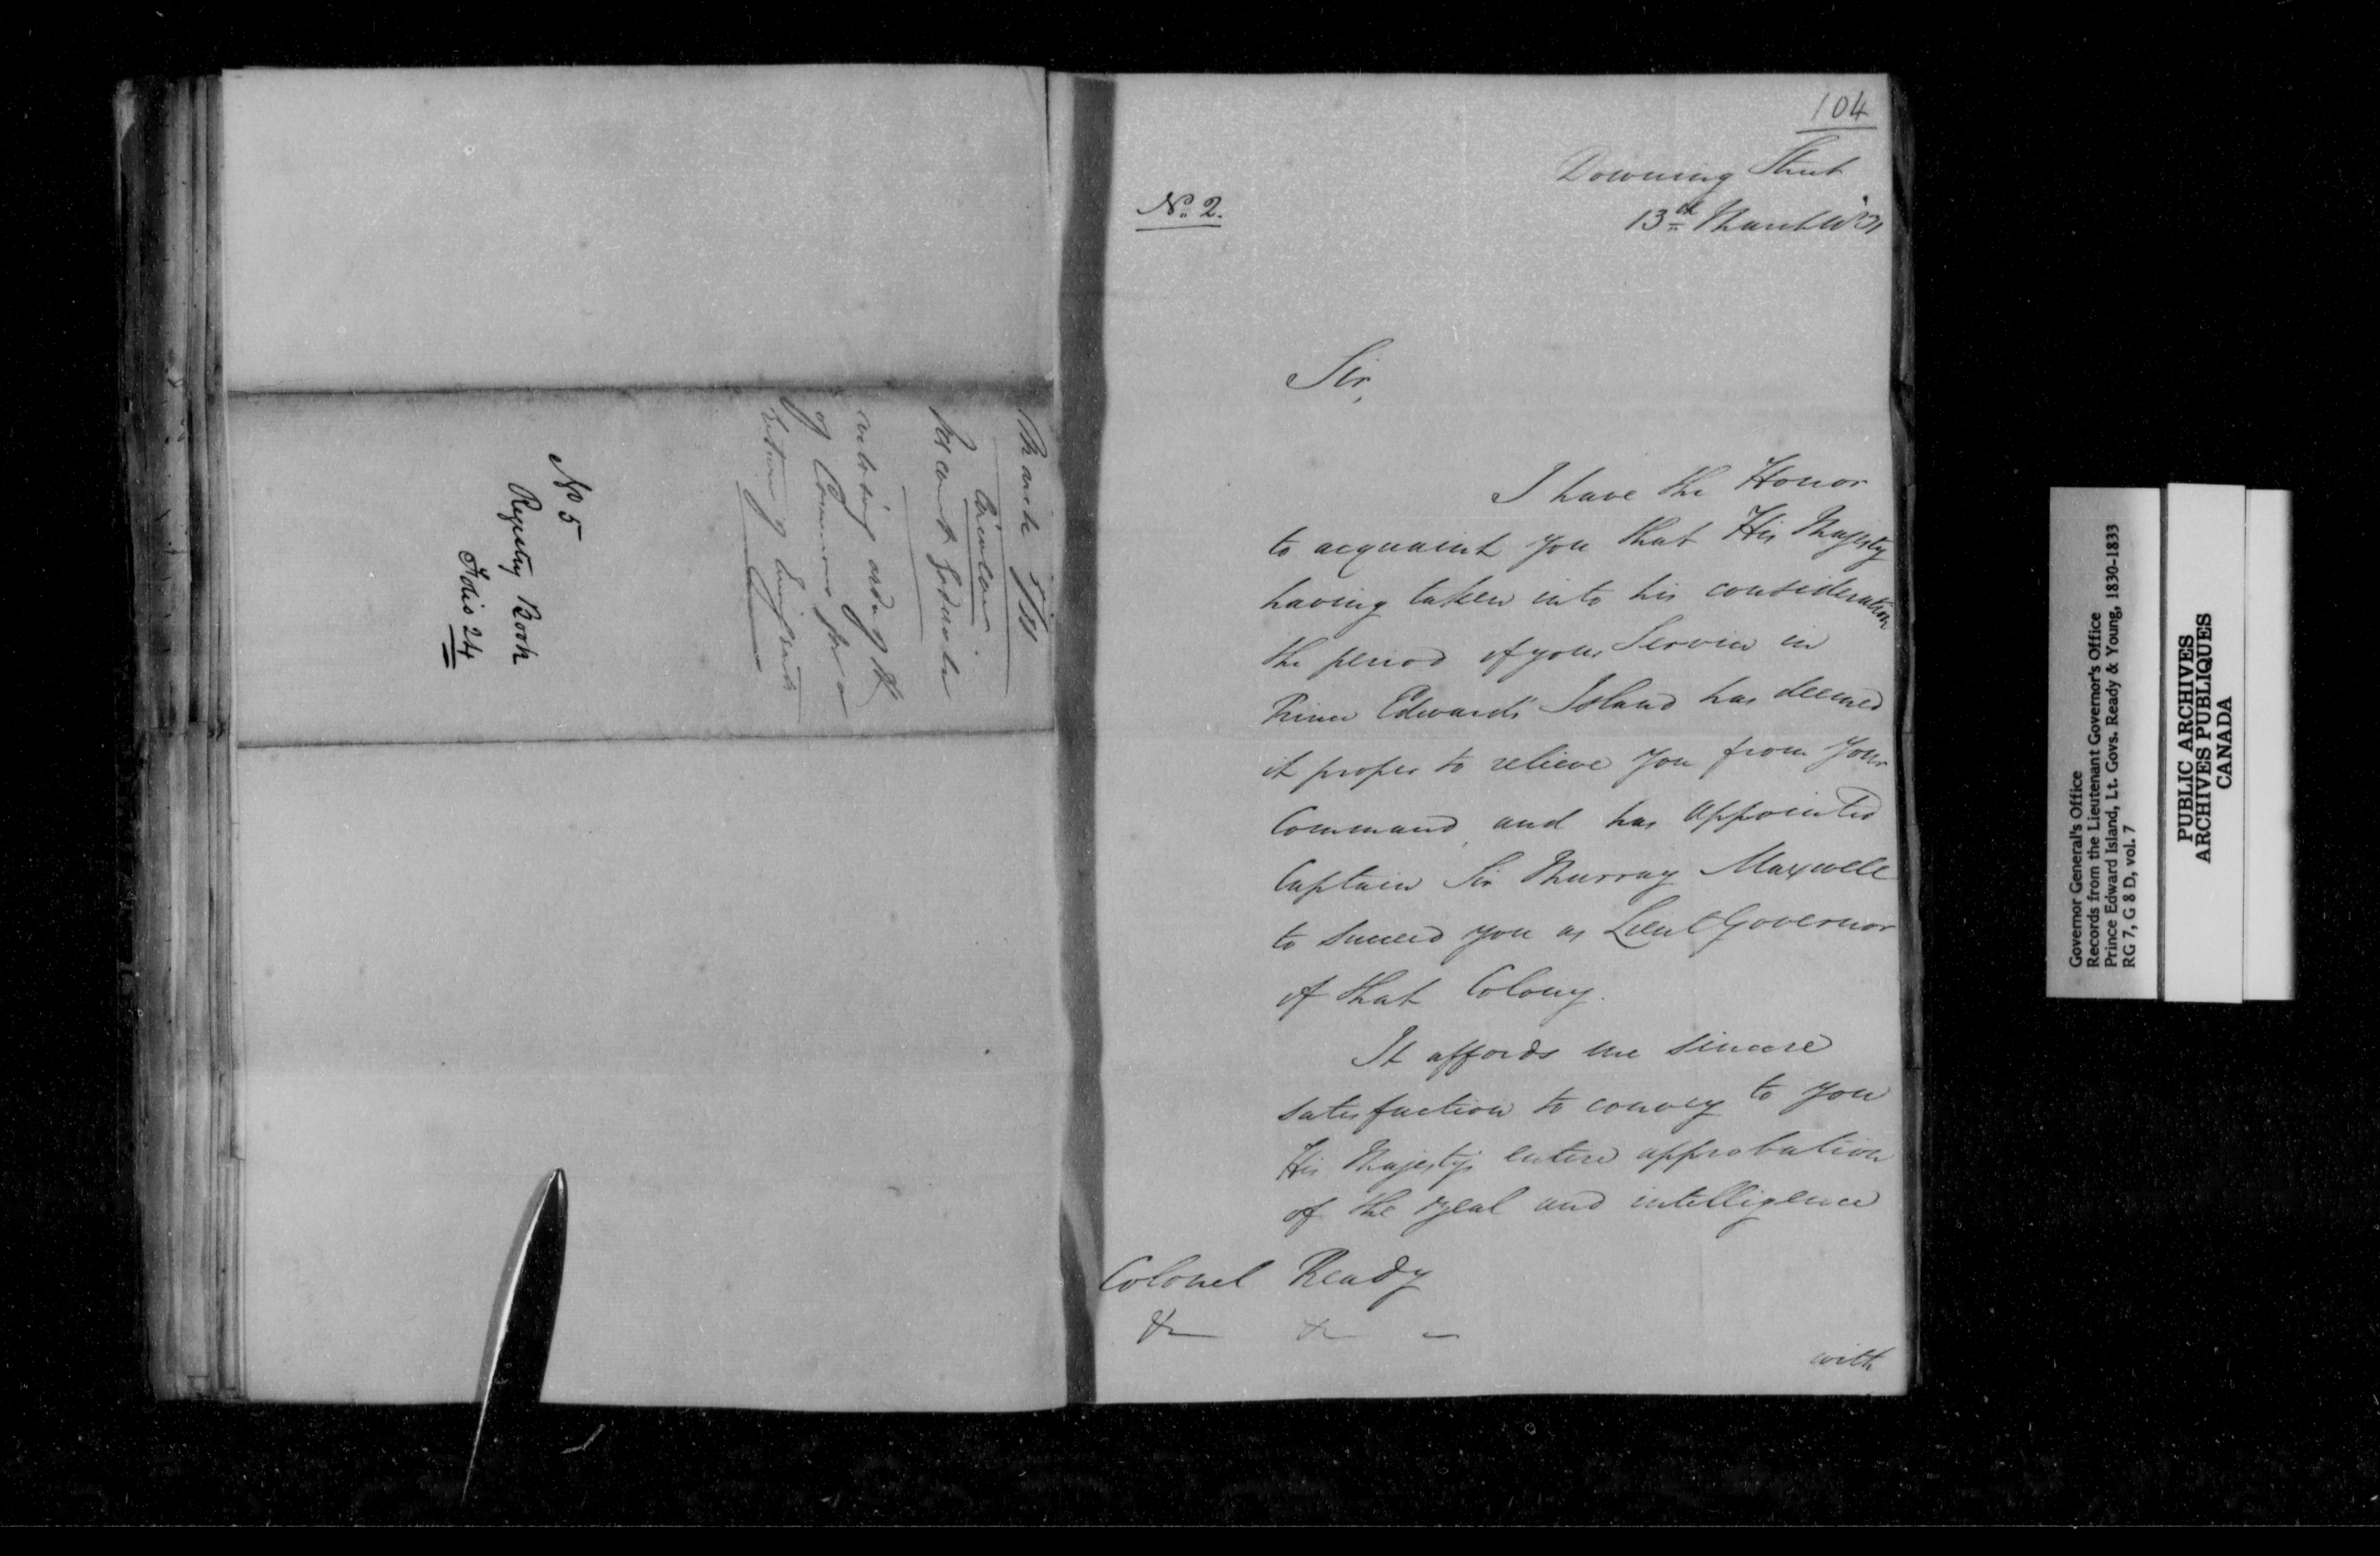 March 5/31
Circular
Vis count Goderich
enclosing order of the
of Commons for a
Return of Emigrants
No 5
Registry Book
Folio 24
104
Downing Street
No. 2.
13th March 1831
Sir,
I have the Honor
to acquaint you that His Majesty
having taken into his consideration
the period of your Service in
Prince Edward's Island has deemed
it proper to relieve you from your
Command, and has appointed
Captain Sir Murray Maxwell
to succeed you as Lieut Governor
of that Colony.
It affords me sincere
satisfaction to convey to you
His Majesty's entire approbation
of the zeal and intelligence
Colonel Ready
&c &c –
with
Governor General's Office
Records from the Lieutenant Governor's Office
Prince Edward Island, Lt. Govs. Ready & Young, 1830-1833
RG 7, G 8 D, vol. 7
PUBLIC ARCHIVES
ARCHIVES PUBLIQUES
CANADA